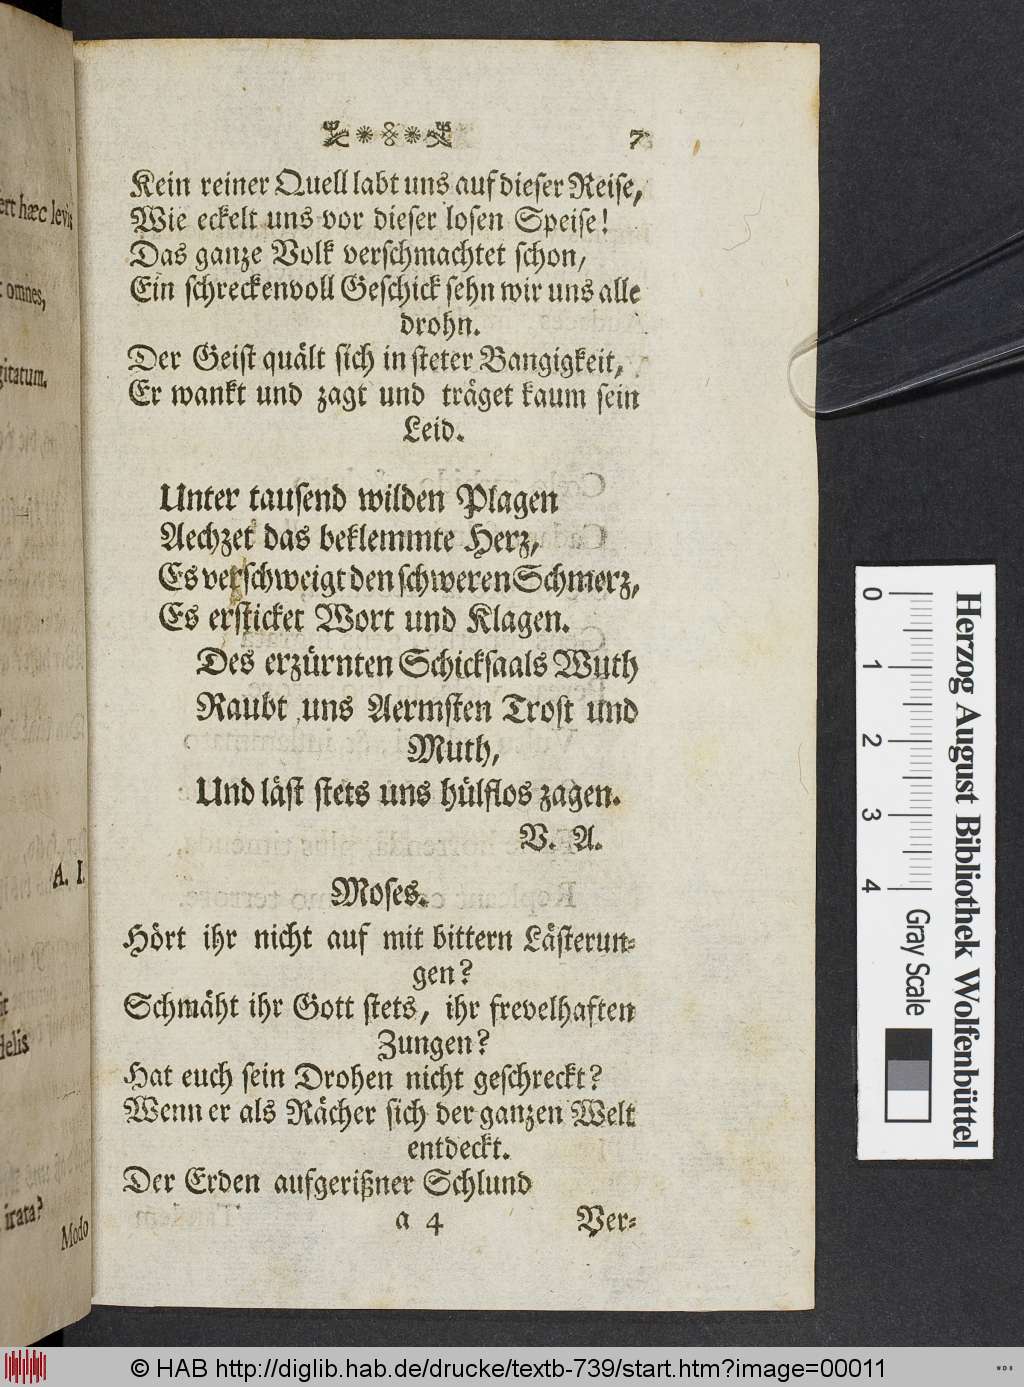 7
Kein reiner Quell labt uns auf dieser Reise,
Wie eckelt uns vor dieser losen Speise!
Das ganze Volk verschmachtet schon,
Ein schreckenvoll Geschick sehn wir uns alle
drohn.
Der Geist quält sich in steter Bangigkeit,
Er wankt und zagt und träget kaum sein
Leid.
Unter tausend wilden Plagen
Aechzet das beklemmte Herz,
Es verschweigt den schweren Schmerz,
Es ersticket Wort und Klagen.
Des erzürnten Schicksaals Wuth
Raubt uns Aermsten Trost und
Muth,
Und läst stets uns hülflos zagen.
V. A.
Moses.
Hört ihr nicht auf mit bittern Lästerun-
gen?
Schmäht ihr Gott stets, ihr frevelhaften
Zungen?
Hat euch sein Drohen nicht geschreckt?
Wenn er als Rächer sich der ganzen Welt
entdeckt.
Der Erden aufgerißner Schlund
a 4 Ver-
hæc levis
omnes,
A. I.
irata?
Modo
0 1 2 3 4
Gray Scale
Herzog August Bibliothek Wolfenbüttel
© HAB http://diglib.hab.de/drucke/textb-739/start.htm?image=00011